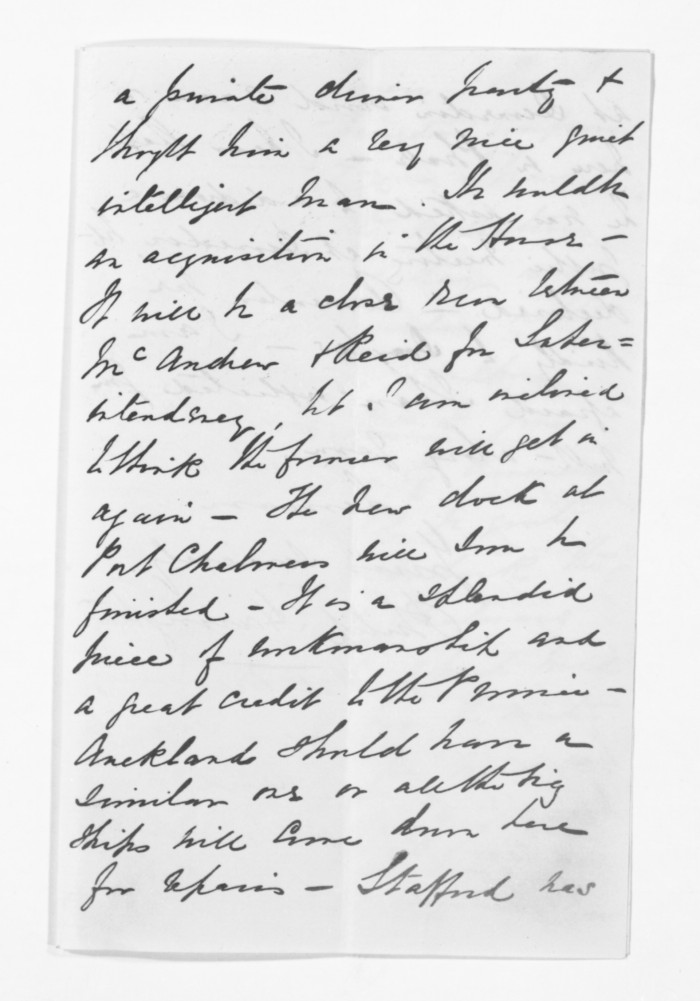 a private dinner party &
thought him a very nice quiet
intelligent man. He would be
an acquisition in the House -
It will be a close run between
McAndrew & Reid for Super=
intendency, but I am inclined
to think the former will get in
again - The new dock at
Port Chalmers will soon be
finished - It is a splendid
piece of workmanship and
a great credit to the Province -
Auckland should have a
similar one or all the big
ships will come down here
for repairs - Stafford has